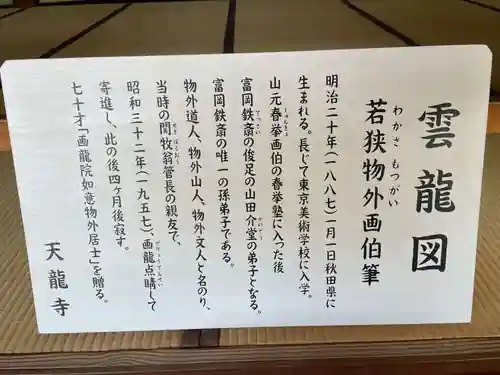 雲龍図
わかさ もつがい
若狭物外画伯筆
明治二十年(一八八七)一月一日秋田県に
生まれる。長じて東京美術学校に入学。
しゅんきょ
山元春挙画伯の春挙塾に入った後
てっさい かいどう
富岡鉄斎の俊足の山田介堂の弟子となる。
富岡鉄斎の唯一の孫弟子である。
物外道人、物外山人、物外文人と名のり、
せき ぼくおう
当時の関牧翁管長の親友で、
がりょうてんせい
昭和三十二年(一九五七)、画龍点晴して
寄進し、此の後四ヶ月後寂す。
七十才「画龍院如意物外居士」を贈る。
天龍寺